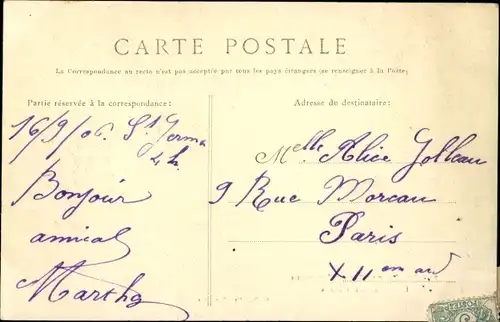 CARTE POSTALE
La Correspondance au recto n'est pas acceptée par tous les pays étrangers (se renseigner à la Poste)
Partie réservée à la correspondance:
16/9/06. St Germa
4h.
Bonjour
amical
Martha
Adresse du destinataire:
Melle Alice
9 Rue Moreau
Paris
XII em ard